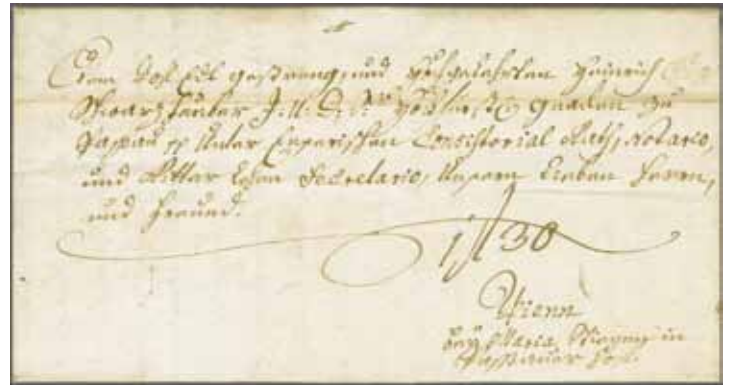 Dem Wol Edl gestreng, und Hochgelehrten Heinrich
Schwarzhueber J: U: D: Sr: Hochfürstl: Gnaden zu
Passau Unter Enserischen Consistorial Rath, Notario,
und Ritter Lehen Secretario, Unsern Lieben Herrn,
und Freund.
1 fl 30
Wienn
bey Maria Stiegen in
Passauer Hof.